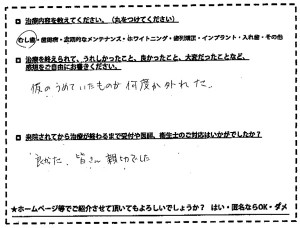 治療内容を教えてください。（丸をつけてください）
むし歯・歯周病・定期的なメンテナンス・ホワイトニング・歯列矯正・インプラント・入れ歯・その他
治療を終えられて、うれしかったこと、良かったこと、大変だったことなど、
感想をご自由にお書きください。
仮のうめていたものが何度か外れた。
来院されてから治療が終わるまで受付や医師、衛生士のご対応はいかがでしたか？
良かった、皆さん親切でした
★ホームページ等でご紹介させて頂いてもよろしいでしょうか？ はい・匿名ならOK・ダメ